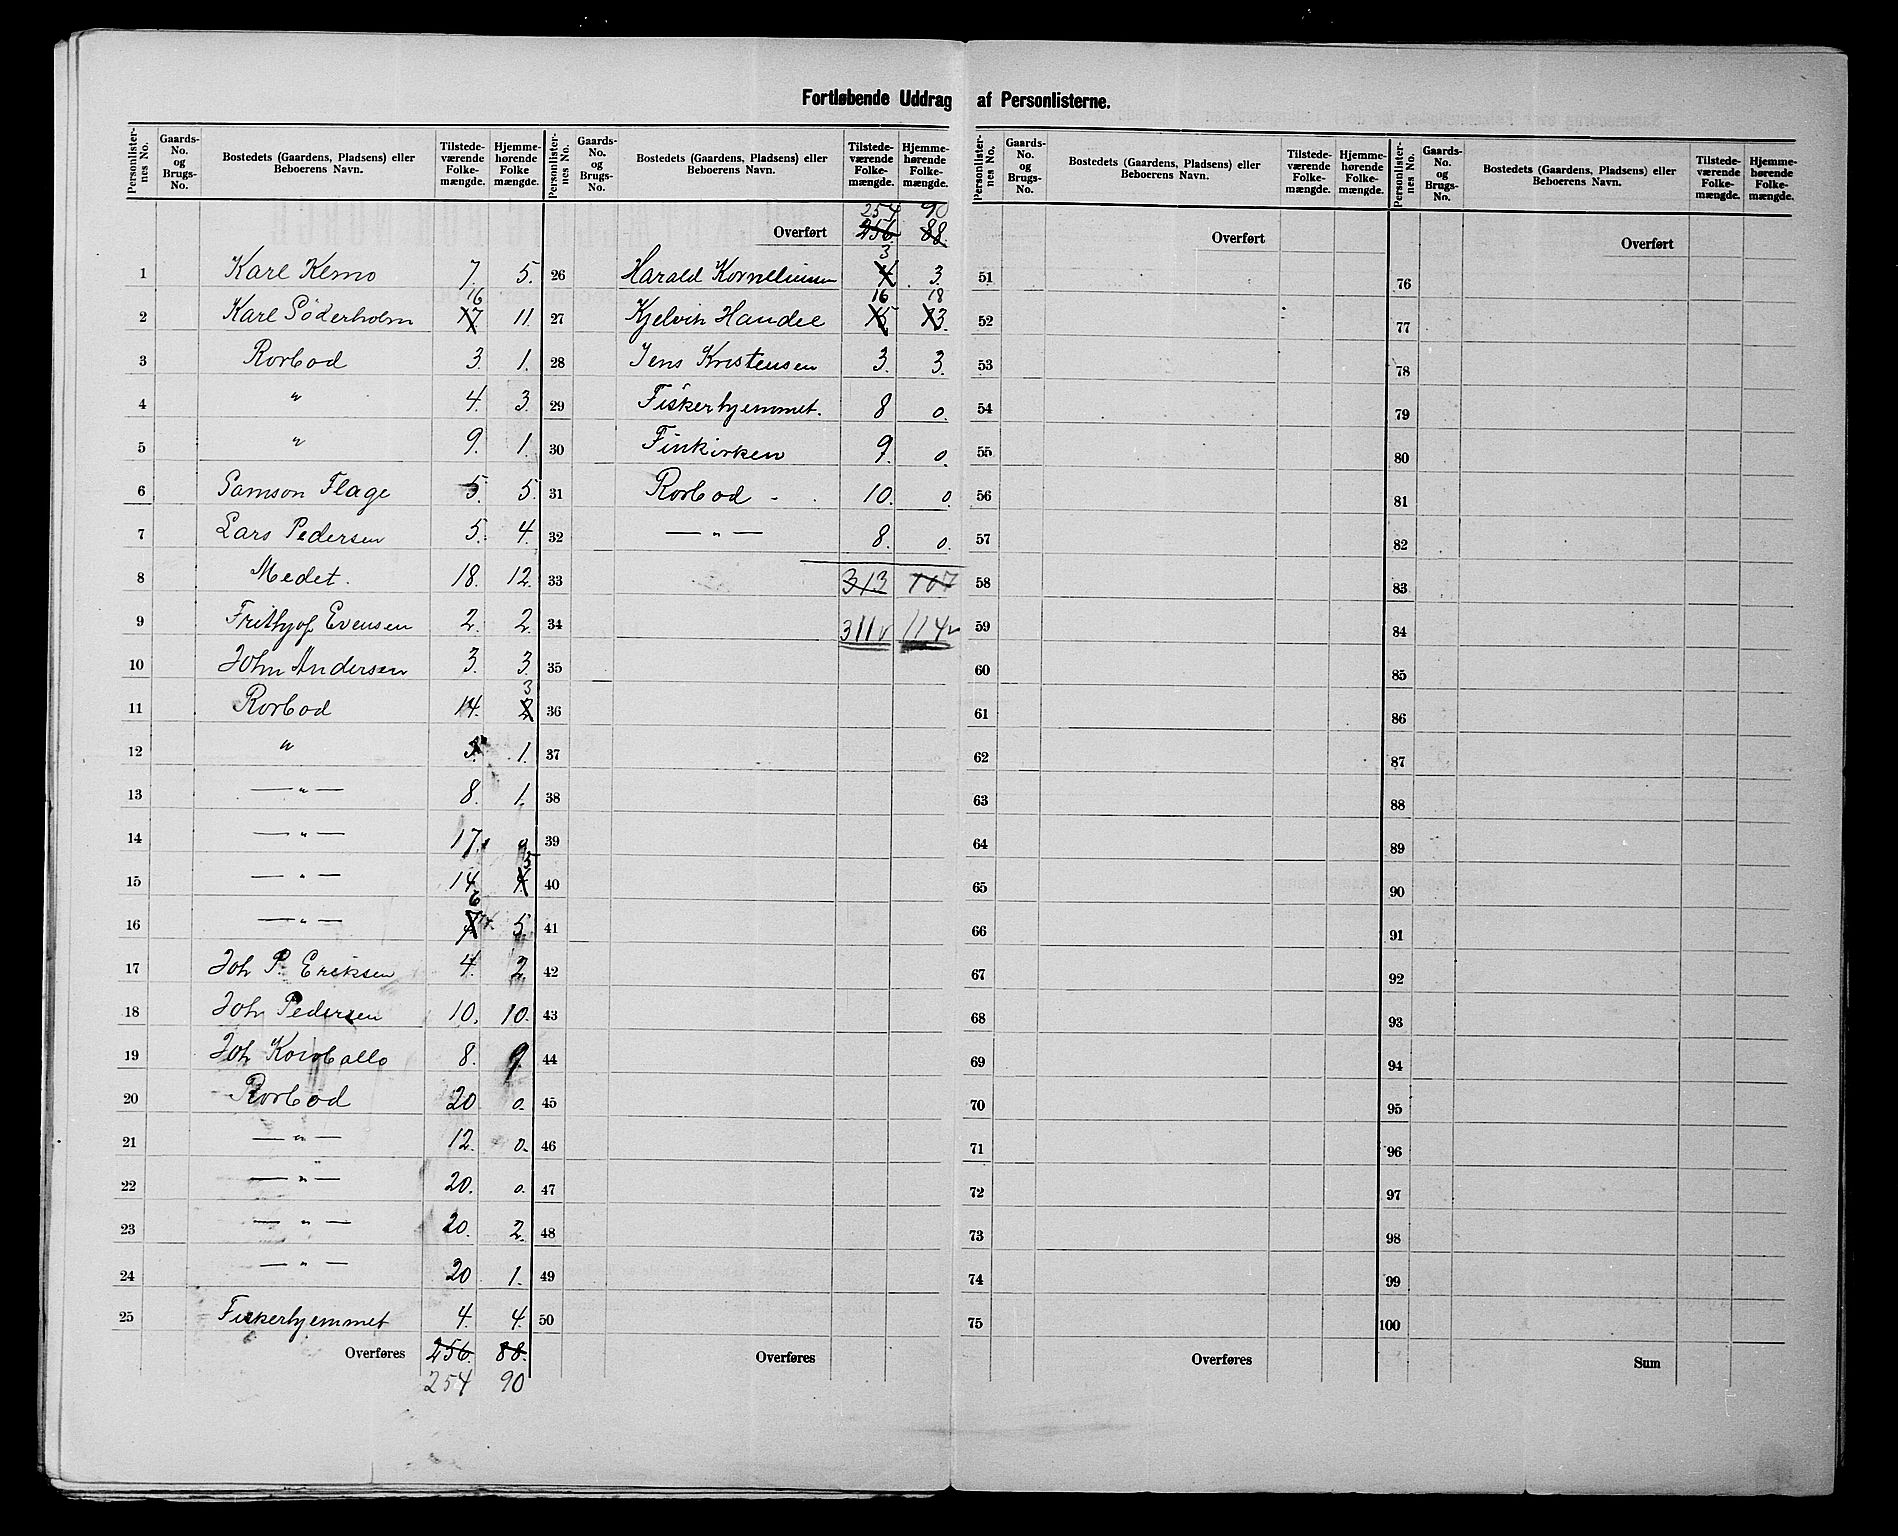 Fortløbende Uddrag af Personlisterne.
Personlister-nes No. | Gaards-No. og Brugs-No. | Bostedets (Gaardens, Pladsens) eller Beboerens Navn. | Tilstede-værende Folke-mængde. | Hjemme-hørende Folke mængde.
1 Karl Kemo 7. 5.
2 Karl Söderholm 17. 16 11.
3 Rorbod 3. 1.
4 " 4. 3.
5 " 9. 1.
6 Samson Flage 5. 5.
7 Lars Pedersen 5. 4.
8 Medet. 18. 12.
9 Frithjof Evensen 2. 2.
10 John Andersen 3. 3.
11 Rorbod 14. 2 3
12 " 1.
13 — " — 8. 1.
14 — " — 17.
15 — " — 14. 4 5
16 — " — 7 6 5.
17 Joh P. Eriksen 4. 2.
18 Joh Pedersen 10. 10.
19 Joh Korvballo 8. 9.
20 Rorbod 20 0.
21 — " — 12. 0.
22 — " — 20. 0.
23 — " — 20. 2.
24 — " — 20 1.
25 Fiskerhjemmet 4. 4.
Overføres 256. 88.
254 90
Personlister-nes No. | Gaards-No. og Brugs-No. | Bostedets (Gaardens, Pladsens) eller Beboerens Navn. | Tilstede-værende Folke-mængde. | Hjemme-hørende Folke-mængde.
254 90
Overført 256. 88.
26 Harald Korneliusen 4 3 3.
27 Kjelvik Handel 15 16 13. 18
28 Jens Kristensen 3. 3.
29 Fiskerhjemmet. 8 0.
30 Finkirken 9. 0.
31 Rorbod - 10. 0
32 — " — 8. 0.
33 313 107
34 311 v 114 v
35
36
37
38
39
40
41
42
43
44
45
46
47
48
49
50
Overføres
Personlister-nes No. | Gaards-No. og Brugs-No. | Bostedets (Gaardens, Pladsens) eller Beboerens Navn. | Tilstede-værende Folke-mængde. | Hjemme-hørende Folke-mængde.
Overført
51
52
53
54
55
56
57
58
59
60
61
62
63
64
65
66
67
68
69
70
71
72
73
74
75
Overføres
Personlister-nes No. | Gaards-No. og Brugs-No. | Bostedets (Gaardens, Pladsens) eller Beboerens Navn. | Tilstede-værende Folke-mængde. | Hjemme-hørende Folke-mængde.
Overført
76
77
78
79
80
81
82
83
84
85
86
87
88
89
90
91
92
93
94
95
96
97
98
99
100
Sum